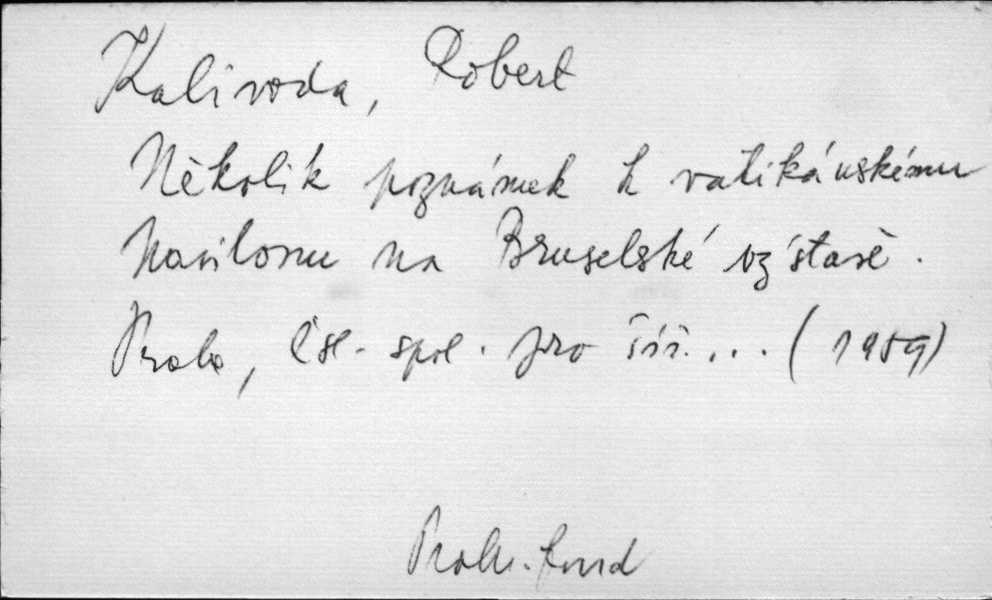 Kalivoda, Robert
Několik poznámek k vatikánskému
pavilonu na Bruselské výstavě.
Praha, Čsl. spol. pro šíř.... (1959)
Proh. fond